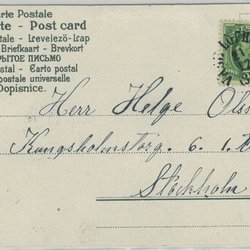 Carte Postale
te - Post card
tale - Levelező-Lap
Briefkaart - Brevkort
РЫТОЕ ПИСЬМО
ostal - Carto postal
postale universelle
Dopisnice.
Herr Helge Olss
Kungsholmstorg. 6. I
Stockholm